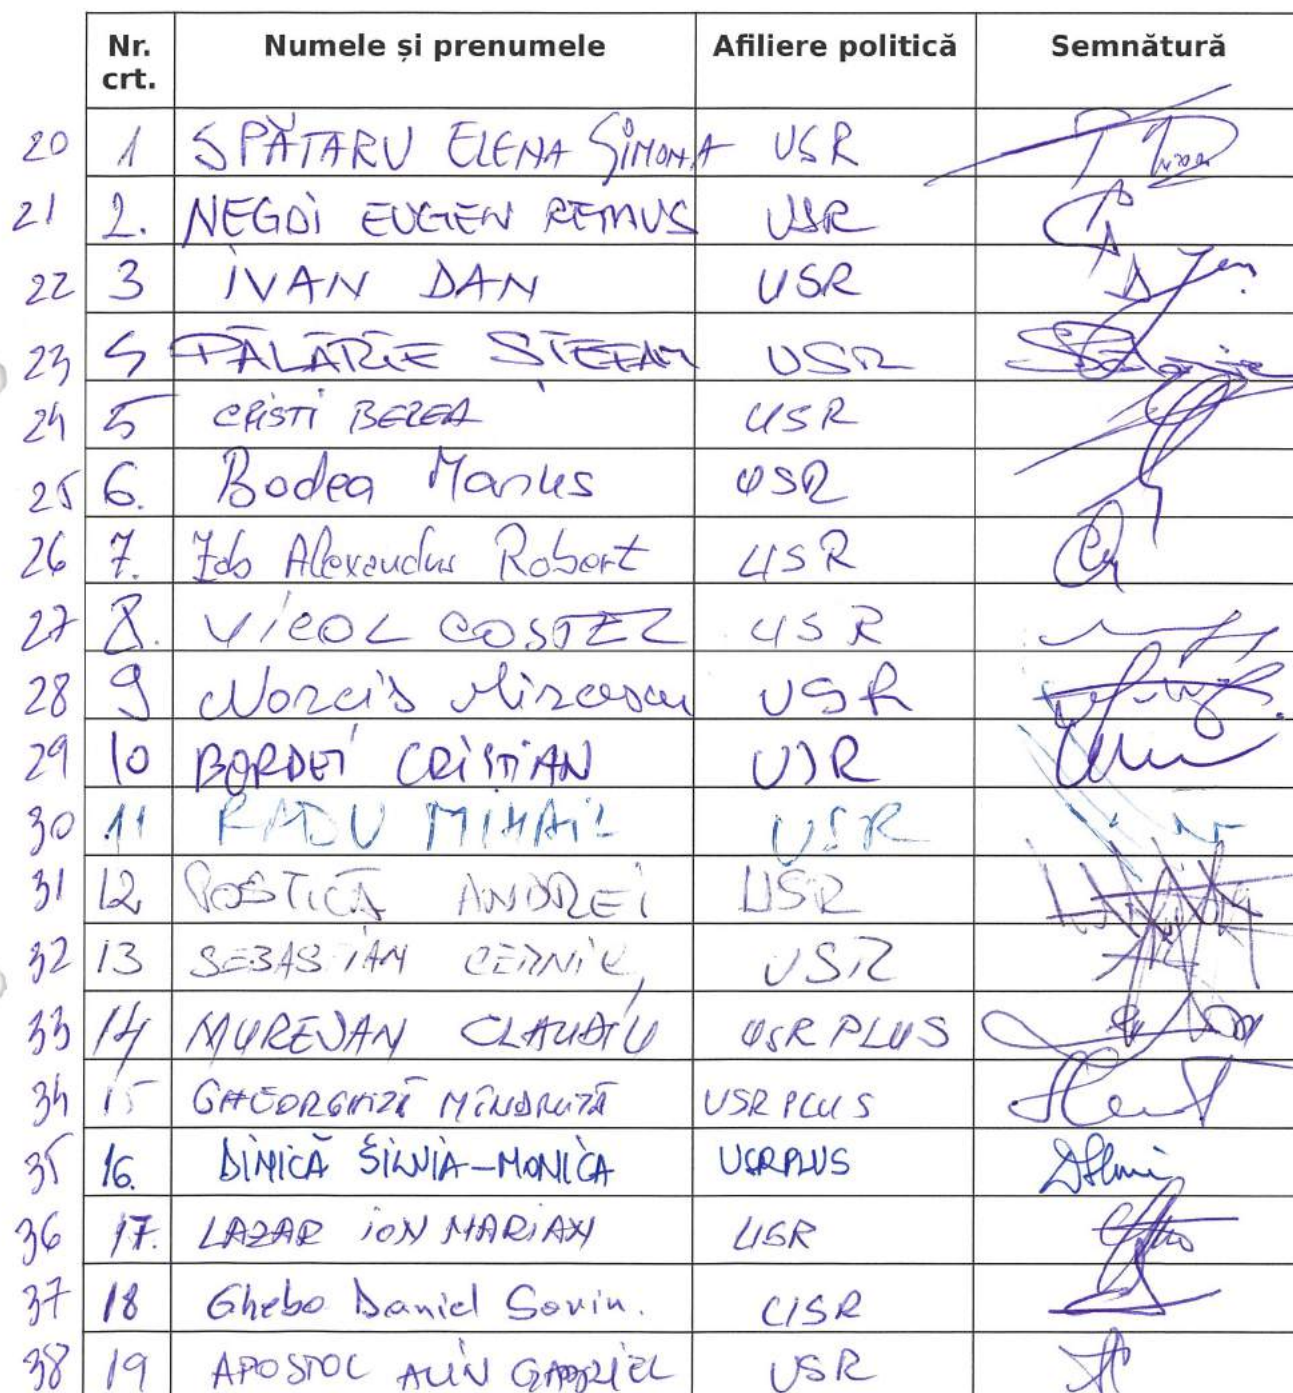 Nr. crt. Numele și prenumele Afiliere politică Semnătură
20 1 SPĂTARU ELENA SIMONA USR
21 2. NEGOI EUGEN REMUS USR
22 3 IVAN DAN USR
23 4 PĂLĂRIE ȘTEFAN USR
24 5 CRISTI BEREA USR
25 6. Bodea Marius USR
26 7. Alexandru Robert USR
27 8. VICOL COSTEL USR
28 9 Narcis Mircescu USR
29 10 BORDEI CRISTIAN USR
30 11 RADU MIHAIL USR
31 12 POSTICĂ ANDREI USR
32 13 SEBASTIAN CERNIC USR
33 14 MUREȘAN CLAUDIU USR PLUS
34 15 GHEORGHIȚĂ MÎNDRUȚĂ USR PLUS
35 16. DINICĂ SILVIA-MONICA USRPLUS
36 17. LAZAR ION MARIAN USR
37 18 Ghebo Daniel Sorin. USR
38 19 APOSTOL ALIN GABRIEL USR